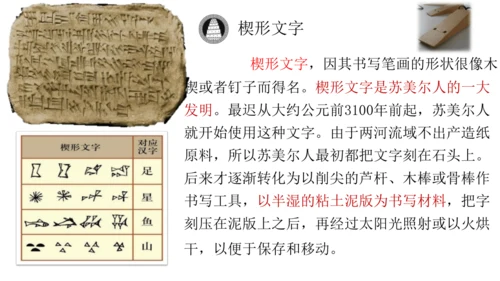 楔形文字
楔形文字，因其书写笔画的形状很像木
楔或者钉子而得名。楔形文字是苏美尔人的一大
发明。最迟从大约公元前3100年前起，苏美尔人
就开始使用这种文字。由于两河流域不出产造纸
原料，所以苏美尔人最初都把文字刻在石头上。
后来才逐渐转化为以削尖的芦杆、木棒或骨棒作
书写工具，以半湿的粘土泥版为书写材料，把字
刻压在泥版上之后，再经过太阳光照射或以火烘
干，以便于保存和移动。
楔形文字 对应汉字
足
星
鱼
山